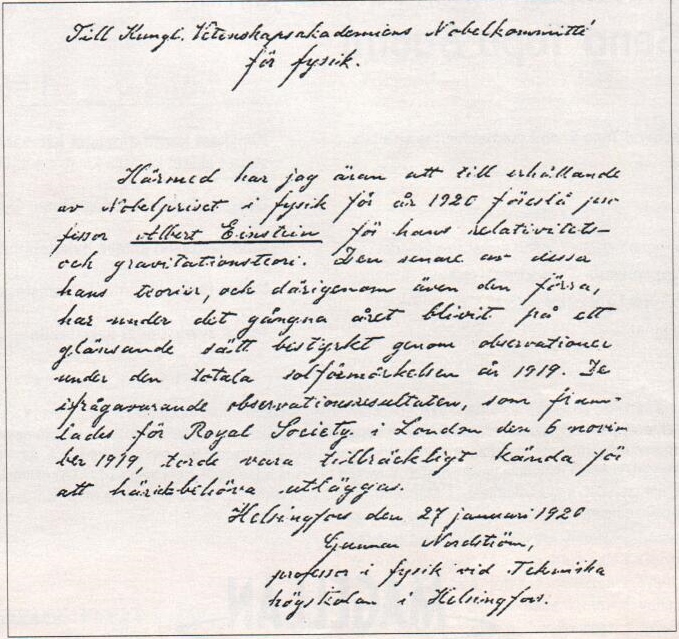 Till Kungl. Vetenskapsakademiens Nobelkommitté
för fysik.
Härmed har jag äran att till erhållande
av Nobelpriset i fysik för år 1920 föreslå pro-
fessor Albert Einstein för hans relativitets-
och gravitationsteori. Den senare av dessa
hans teorier, och därigenom även den förra,
har under det gångna året blivit på ett
glänsande sätt bestyrkt genom observationer
under den totala solförmörkelsen år 1919. De
ifrågavarande observationsresultaten, som fram-
lades för Royal Society i London den 6 novem
ber 1919, torde vara tillräckligt kända för
att här behöva utläggas.
Helsingfors den 27 januari 1920
Gunnar Nordström,
professor i fysik vid Tekniska
högskolan i Helsingfors.